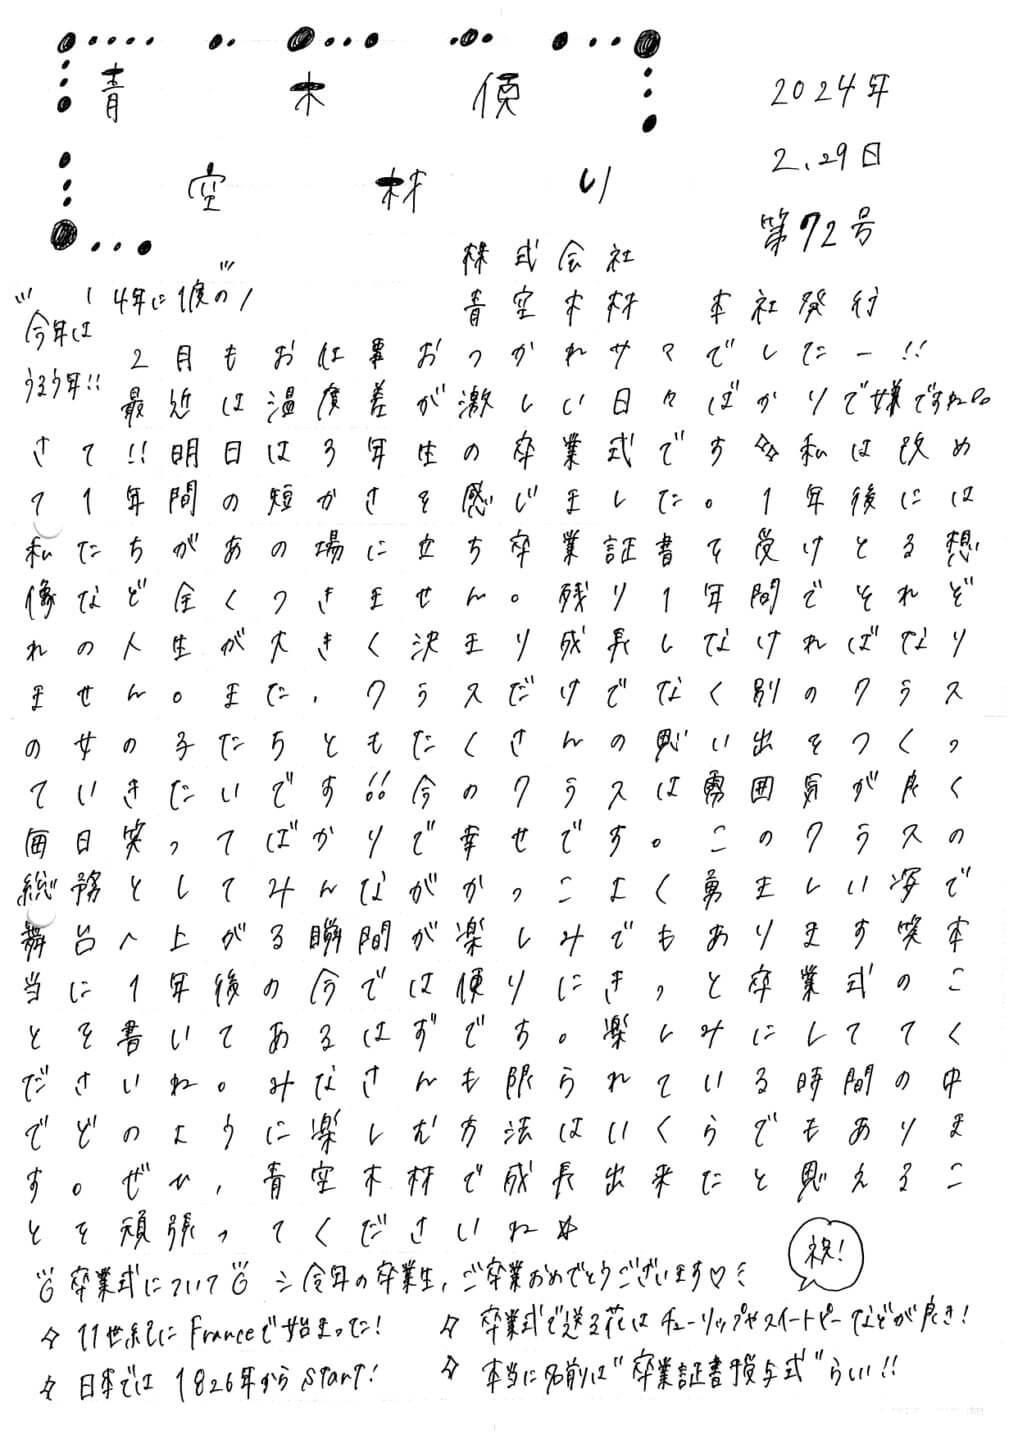 青木便
空材り
2024年
2.29日
第72号
株式会社
青空木材 本社発行
\ 4年に1度の /
今年は
うるう年!!
2月もお仕事おつかれサマでしたー!!
最近は温度差が激しい日々ばかりで嫌ですね。。
さて!!明日は3年生の卒業式です☆☆私は改め
て1年間の短かさを感じました。1年後には
私たちがあの場に立ち卒業証書を受けとる想
像など全くつきません。残り1年間でそれぞ
れの人生が大きく決まり成長しなければなり
ません。また、クラスだけでなく別のクラス
の女の子たちともたくさんの思い出をつくっ
ていきたいです!!今のクラスは雰囲気が良く
毎日笑ってばかりで幸せです。このクラスの
総務としてみんながかっこよく勇ましい姿で
舞台へ上がる瞬間が楽しみでもあります笑本
当に1年後の今では便りにきっと卒業式のこ
とを書いてあるはずです。楽しみにしててく
ださいね。みなさんも限られている時間の中
でどのように楽しむ方法はいくらでもありま
す。ぜひ、青空木材で成長出来たと思えるこ
とを頑張ってくださいね☆
卒業式について 今年の卒業生、ご卒業おめでとうございます♡
祝!
☆ 11世紀にFranceで始まった!
☆ 卒業式で送る花はチューリップやスイートピーなどが良き!
☆ 日本では1826年からstart!
☆ 本当に名前は"卒業証書授与式"らしい!!